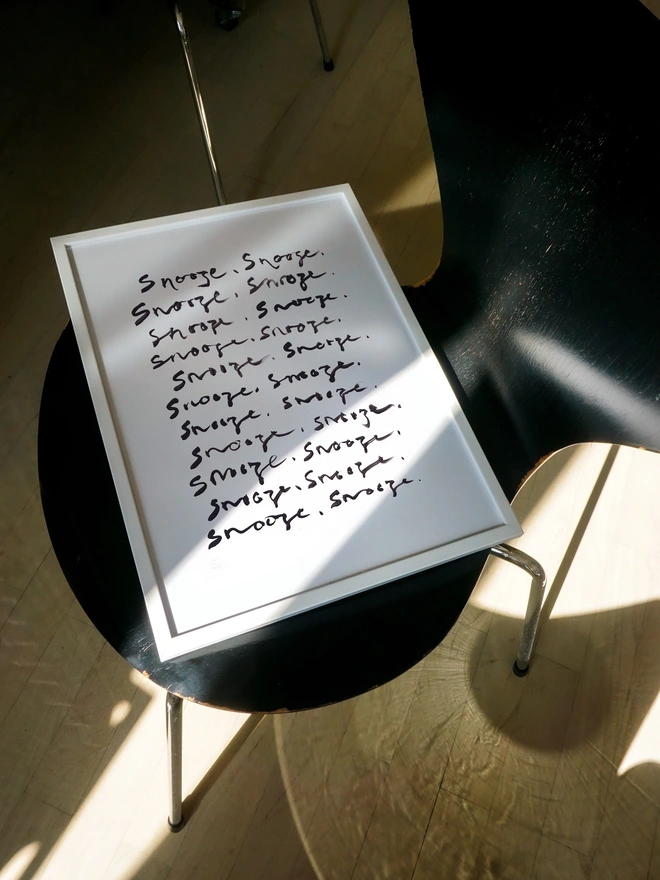 Snooze. Snooze.
Snooze. Snooze.
Snooze. Snooze.
Snooze. Snooze.
Snooze. Snooze.
Snooze. Snooze.
Snooze. Snooze.
Snooze. Snooze.
Snooze. Snooze.
Snooze. Snooze.
Snooze. Snooze.